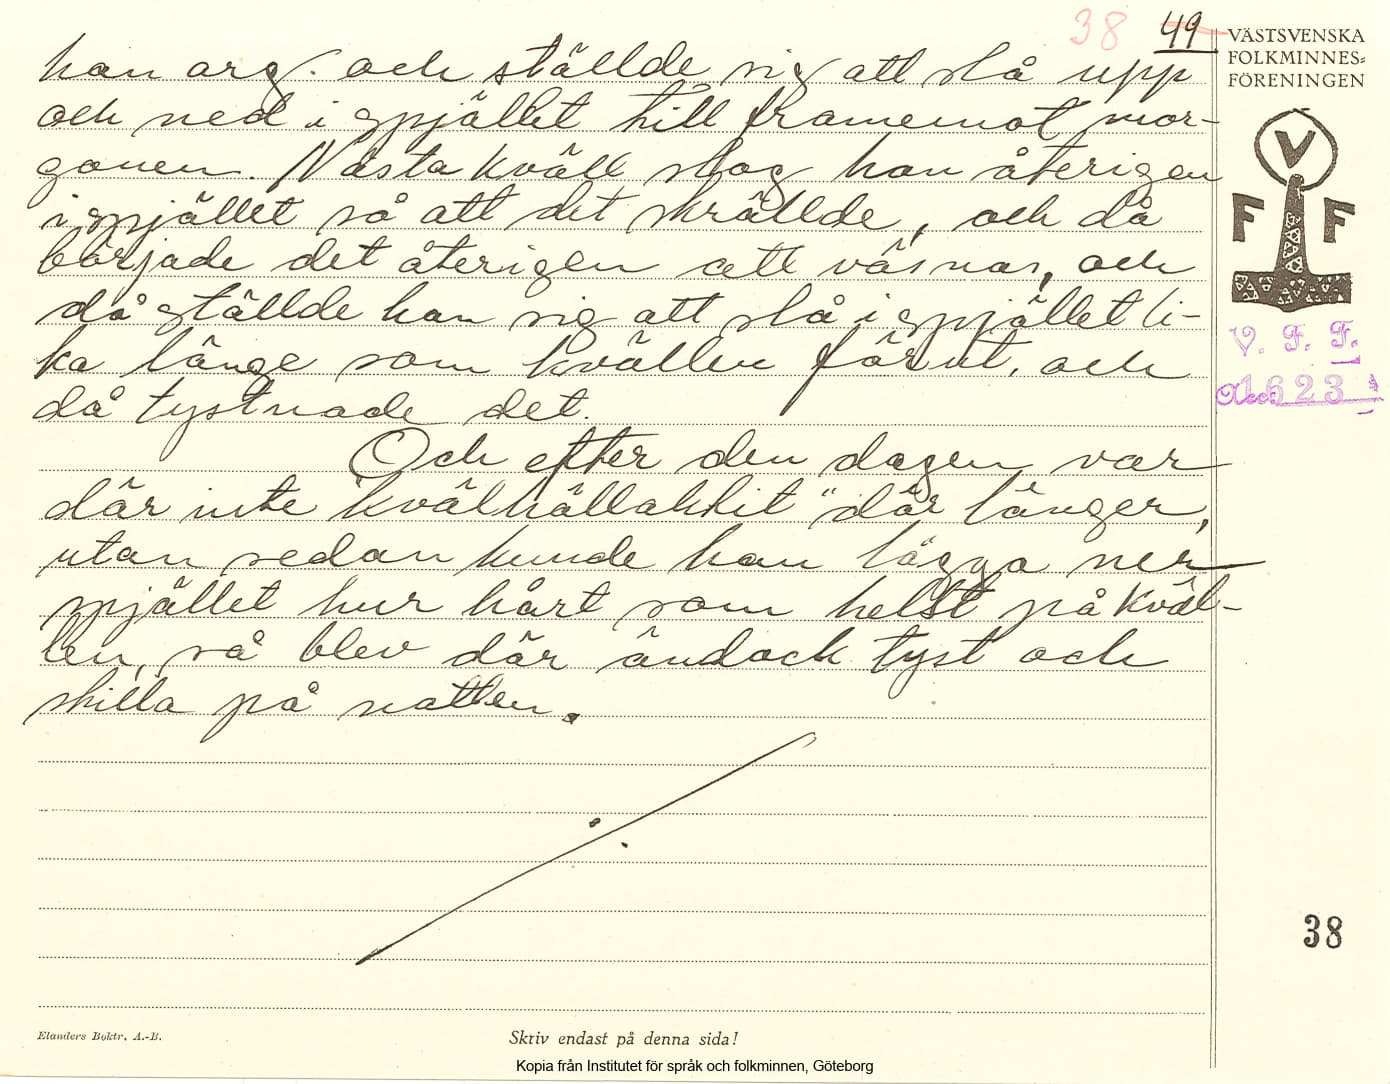 38 49
VÄSTSVENSKA
FOLKMINNES=
FÖRENINGEN
han arg. och ställde sig att slå upp
och ned i spjället till framemot mor-
gonen. Nästa kväll slog han återigen
i spjället så att det skrällde, och då
började det återigen att väsnas, och
då ställde han sig att slå i spjället li-
ka länge som kvällen förut, och
då tystnade det.
Och efter den dagen var
där inte kvälhällakkit" där länger,
utan sedan kunde han lägga ner
spjället hur hårt som helst på kväl-
len, så blev där ändock tyst och
stilla på natten.
V
F F
V. F. F.
Acc. 1623
38
Elanders Boktr. A.-B.
Skriv endast på denna sida!
Kopia från Institutet för språk och folkminnen, Göteborg